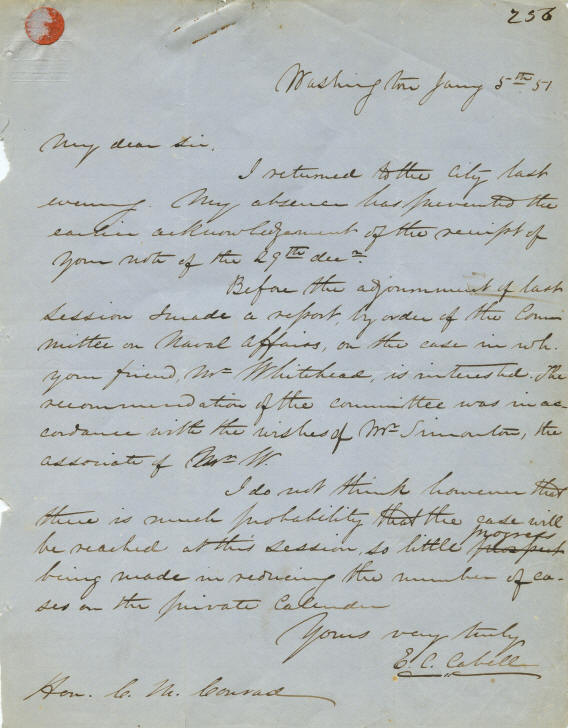 256
Washington Jany 5th 51
My dear Sir,
I returned to the City last
evening. My absence has prevented the
earlier acknowledgement of the receipt of
your note of the 29th decr.
Before the adjournment of last
session I made a report, by order of the Com-
mittee on Naval Affairs, on the case in wh.
your friend, Mr Whitehead, is interested. The
recommendation of the committee was in ac-
cordance with the wishes of Mr Simonton, the
associate of Mr W.
I do not think however that
there is much probability that the case will
be reached at this session, so little progress
being made in reducing the number of ca-
ses on the private Calender
Yours very truly
E. C. Cabell
Hon. C. M. Conrad